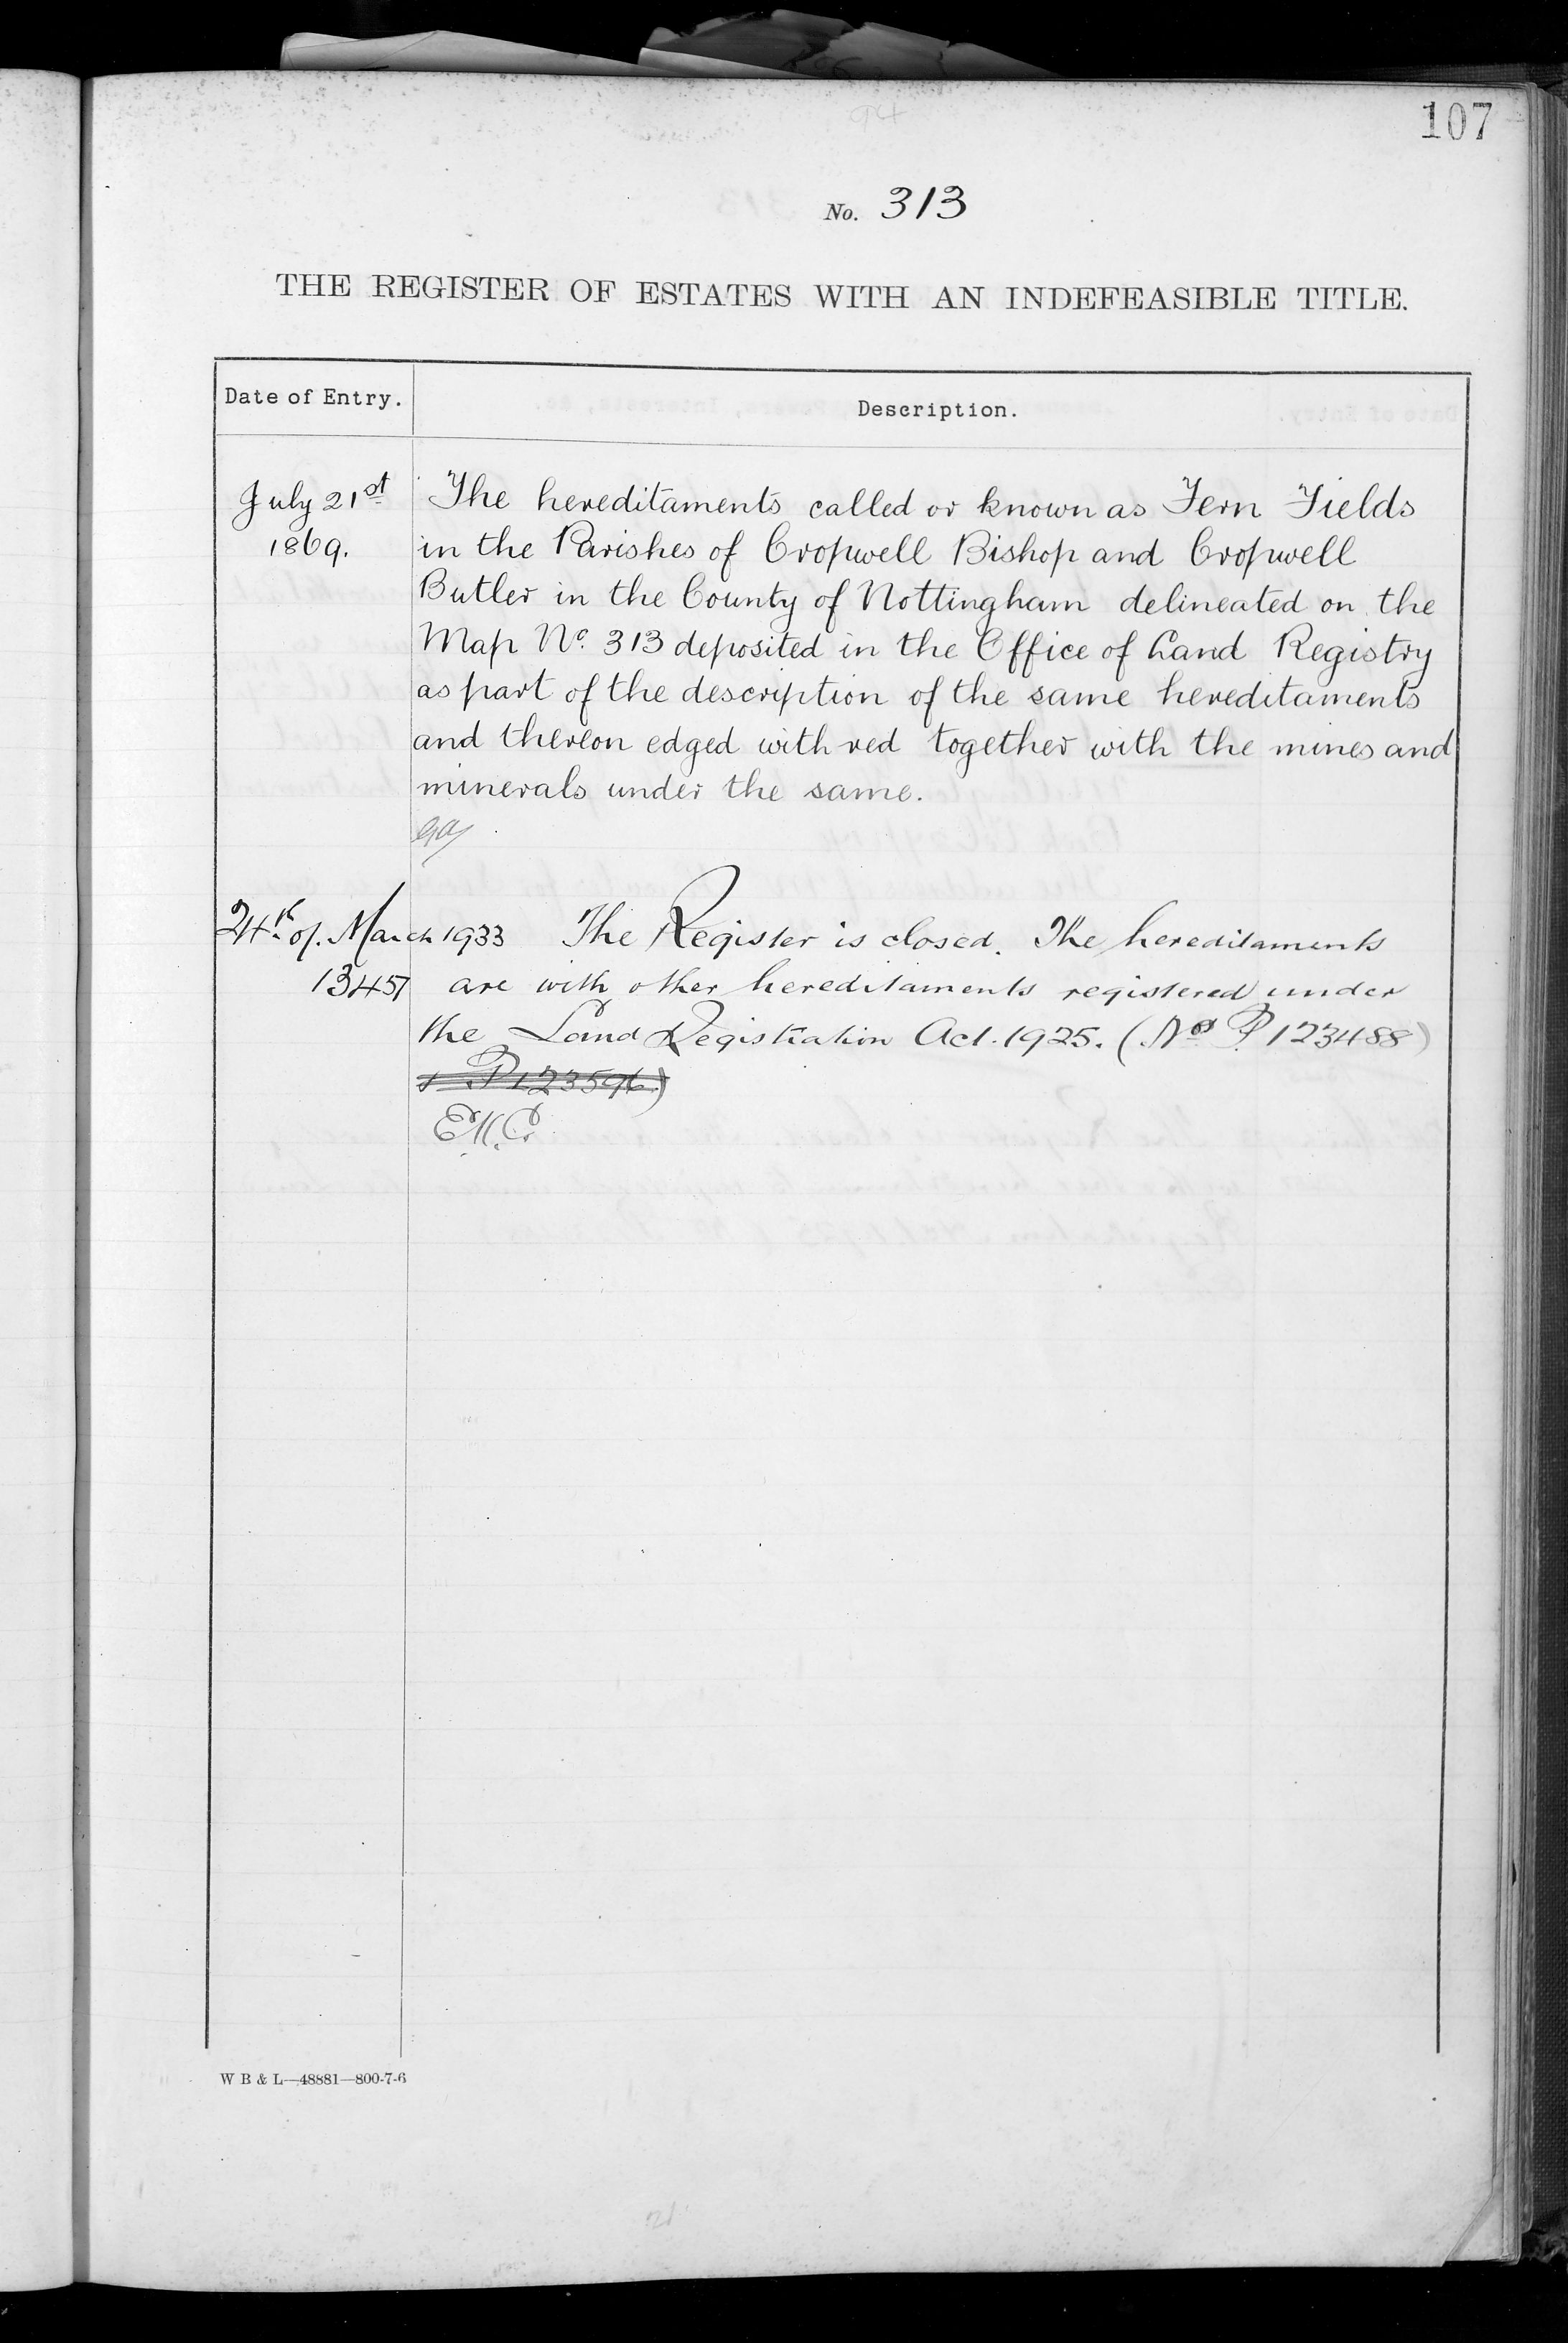 107
No. 313
THE REGISTER OF ESTATES WITH AN INDEFEASIBLE TITLE.
Date of Entry. Description.
July 21st The hereditaments called or known as Fern Fields
1869. in the Parishes of Cropwell Bishop and Cropwell
Butler in the County of Nottingham delineated on the
Map No. 313 deposited in the Office of Land Registry
as part of the description of the same hereditaments
and thereon edged with red together with the mines and
minerals under the same.
24th of March 1933 The Register is closed. The hereditaments
13457 are with other hereditaments registered under
the Land Registration Act. 1925. (Nos P. 123488)
W B & L—48881—800-7-6